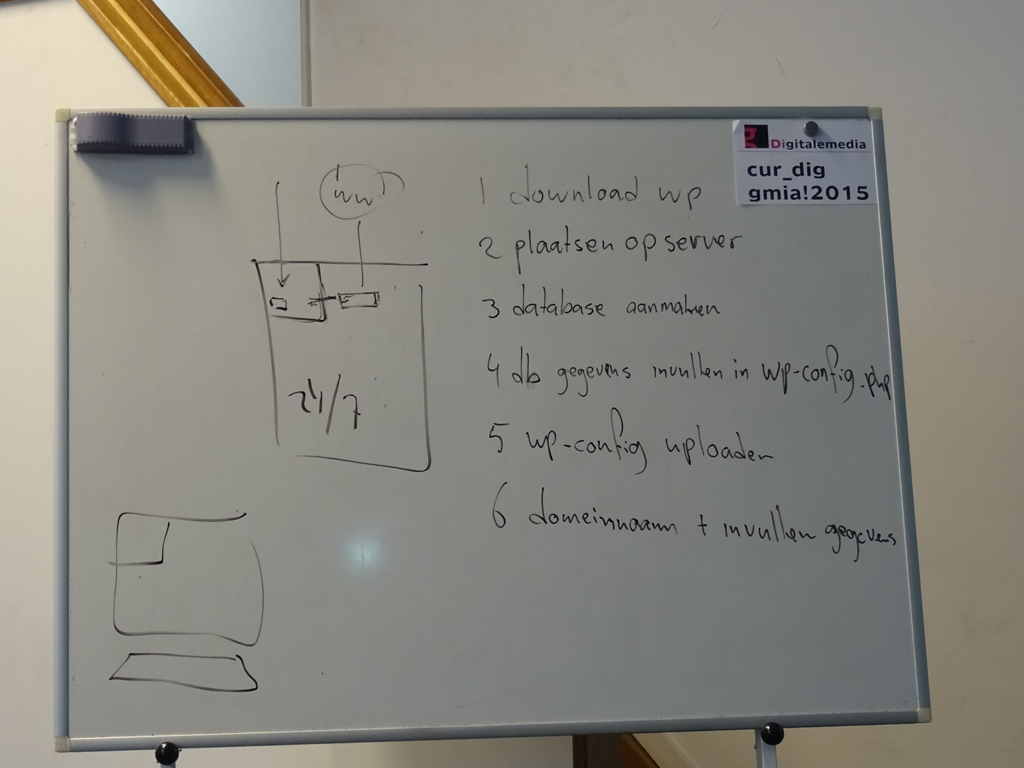 Digitalemedia
cur_dig
gmia!2015
1 download wp
2 plaatsen op server
3 database aanmaken
4 db gegevens invullen in wp-config.php
5 wp-config uploaden
6 domeinnaam + invullen gegevens
24/7